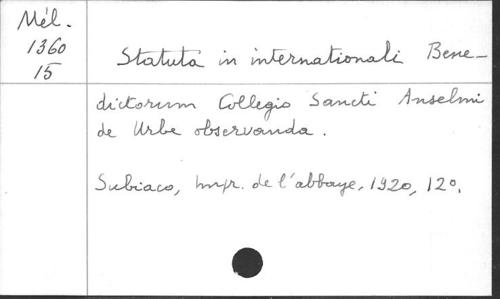 Mél.
1360
15
Statuta in internationali Bene-
dictorum Collegio Sancti Anselmi
de Urbe observanda.
Subiaco, Impr. de l'abbaye, 1920, 12°.